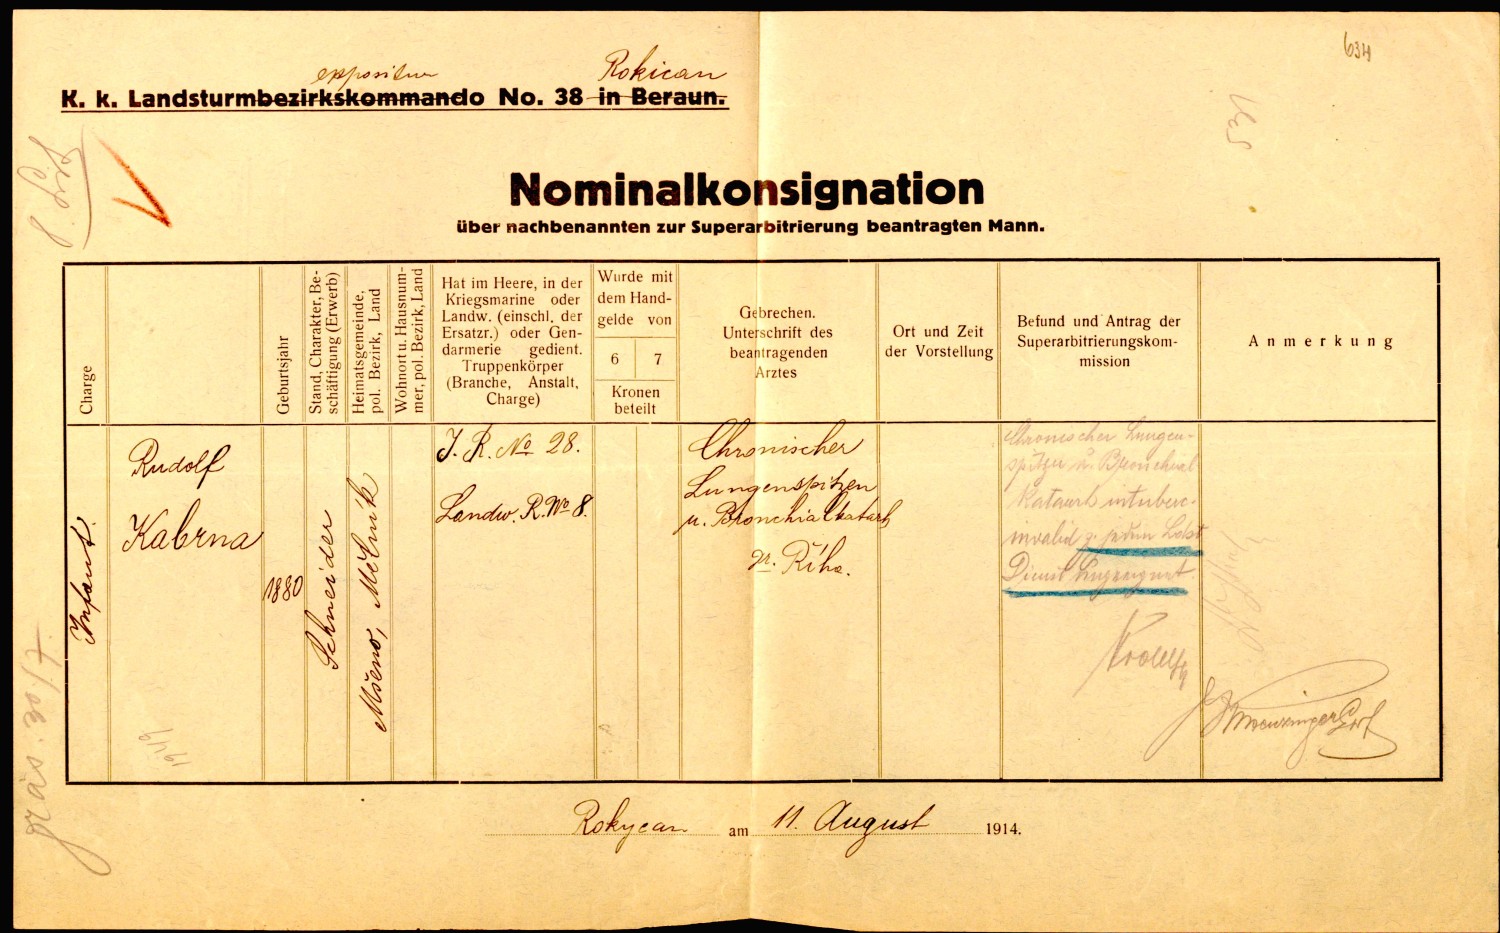 634
expositur Rokican
K. k. Landsturmbezirkskommando No. 38 in Beraun.
Nominalkonsignation
über nachbenannten zur Superarbitrierung beantragten Mann.
Charge
Geburtsjahr
Stand, Charakter, Be-
schäftigung (Erwerb)
Heimatsgemeinde,
pol. Bezirk, Land
Wohnort u. Hausnum-
mer, pol. Bezirk, Land
Hat im Heere, in der
Kriegsmarine oder
Landw. (einschl. der
Ersatzr.) oder Gen-
darmerie gedient.
Truppenkörper
(Branche, Anstalt,
Charge)
Wurde mit
dem Hand-
gelde von
6 7
Kronen
beteilt
Gebrechen.
Unterschrift des
beantragenden
Arztes
Ort und Zeit
der Vorstellung
Befund und Antrag der
Superarbitrierungskom-
mission
Anmerkung
Infant.
Rudolf
Kabrna
1880
Schneider
Mšeno, Mělník
I. R. No 28.
Landw. R. No 8.
Chronischer
Lungenspitzen
u. Bronchialkatarh
Dr. Říha.
Chronischer Lungen-
spitzen u. Bronchial
Katarrh
invalid z. jedem
Dienst ungeeignet.
1949
Rokycan am 11. August 1914.